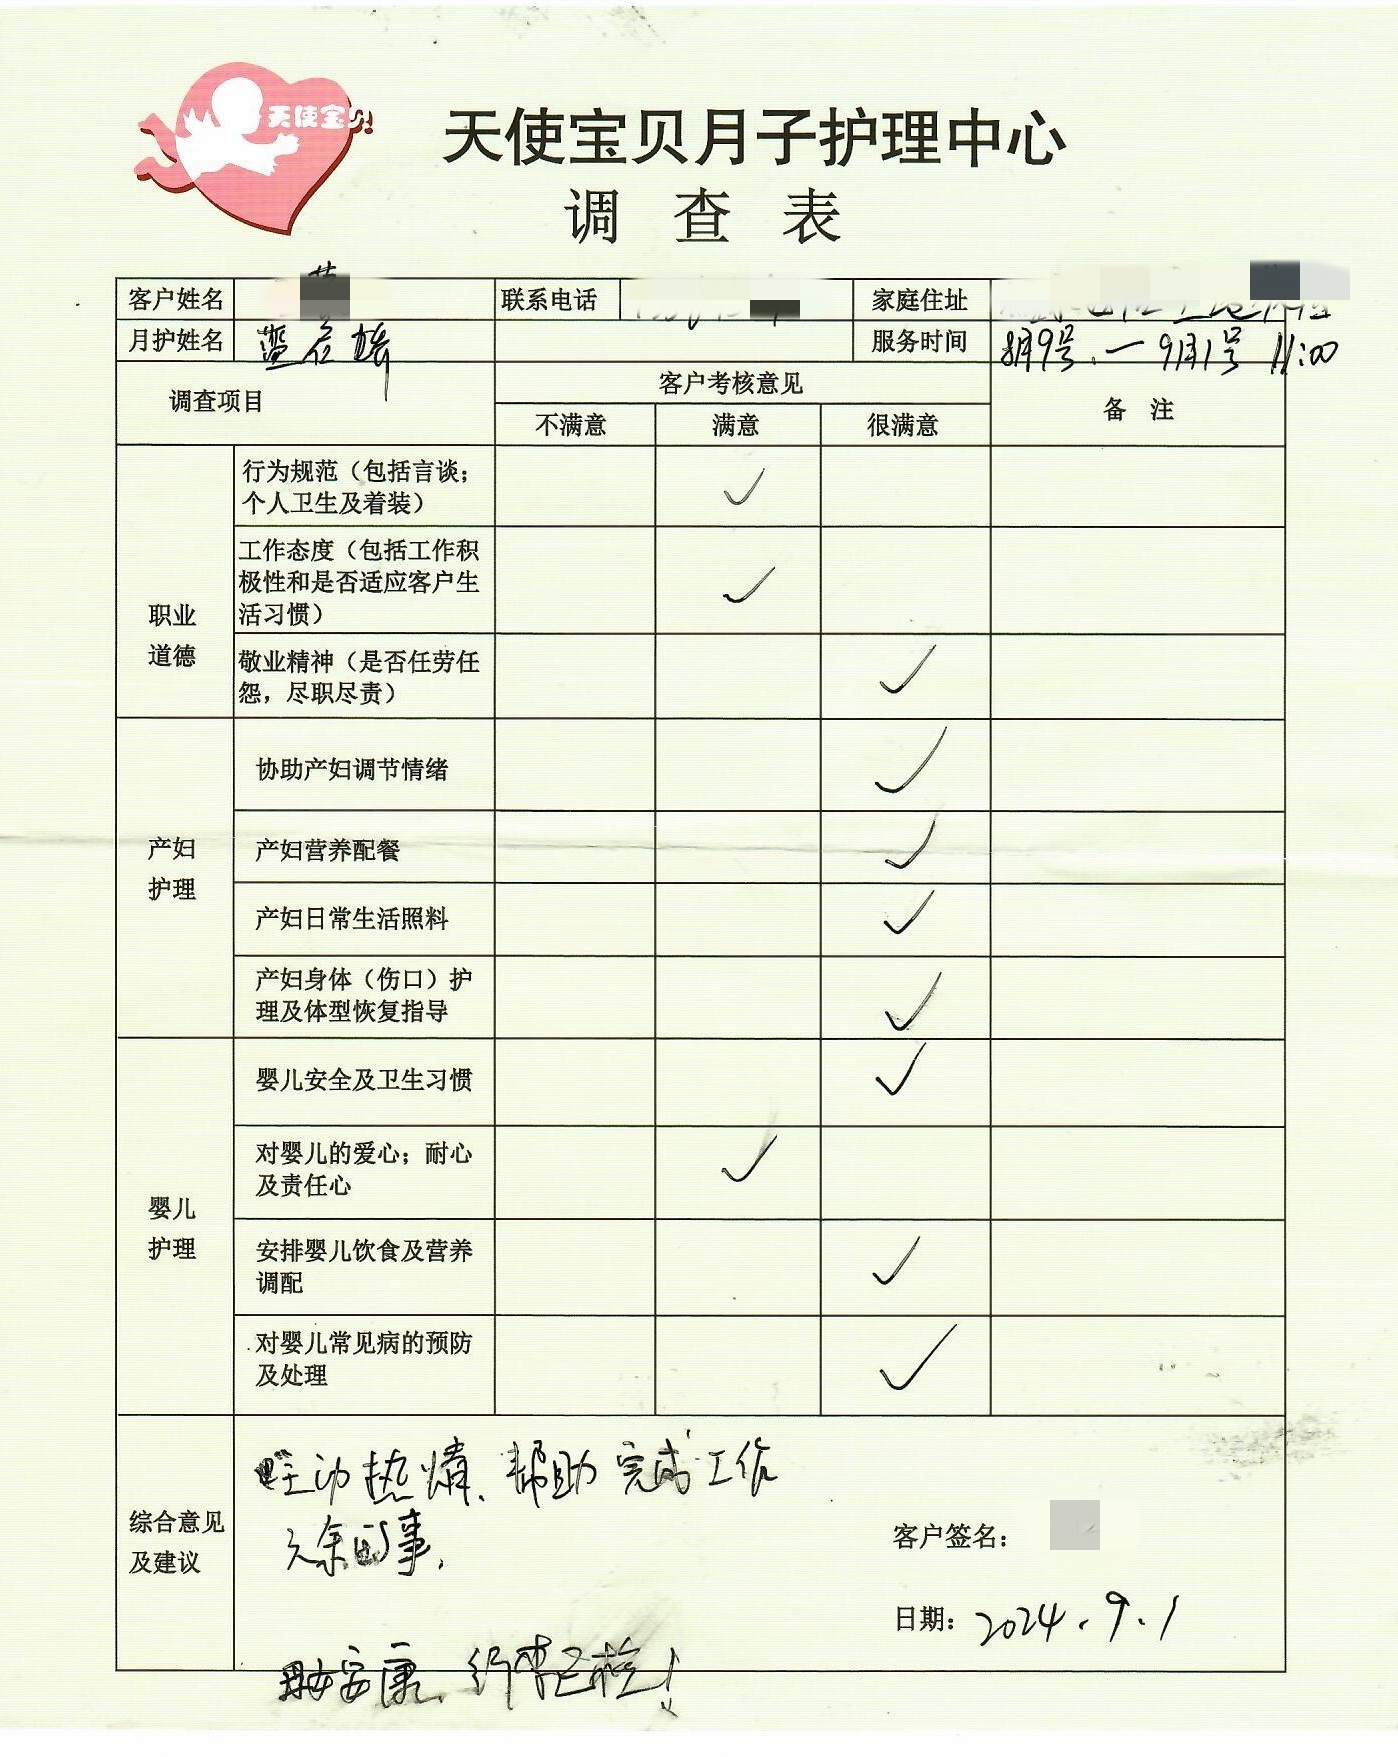 天使宝贝
天使宝贝月子护理中心
调查表
客户姓名 联系电话 家庭住址
月护姓名 蓝 服务时间 8月9号、一 9月1号 11:00
调查项目 客户考核意见 备 注
不满意 满意 很满意
职业
道德
行为规范（包括言谈；
个人卫生及着装） ✓
工作态度（包括工作积
极性和是否适应客户生
活习惯） ✓
敬业精神（是否任劳任
怨，尽职尽责） ✓
产妇
护理
协助产妇调节情绪 ✓
产妇营养配餐 ✓
产妇日常生活照料 ✓
产妇身体（伤口）护
理及体型恢复指导 ✓
婴儿
护理
婴儿安全及卫生习惯 ✓
对婴儿的爱心；耐心
及责任心 ✓
安排婴儿饮食及营养
调配 ✓
对婴儿常见病的预防
及处理 ✓
综合意见
及建议
主动热情、帮助完成工作
之余的事.
客户签名：
日期：2024.9.1
安康、